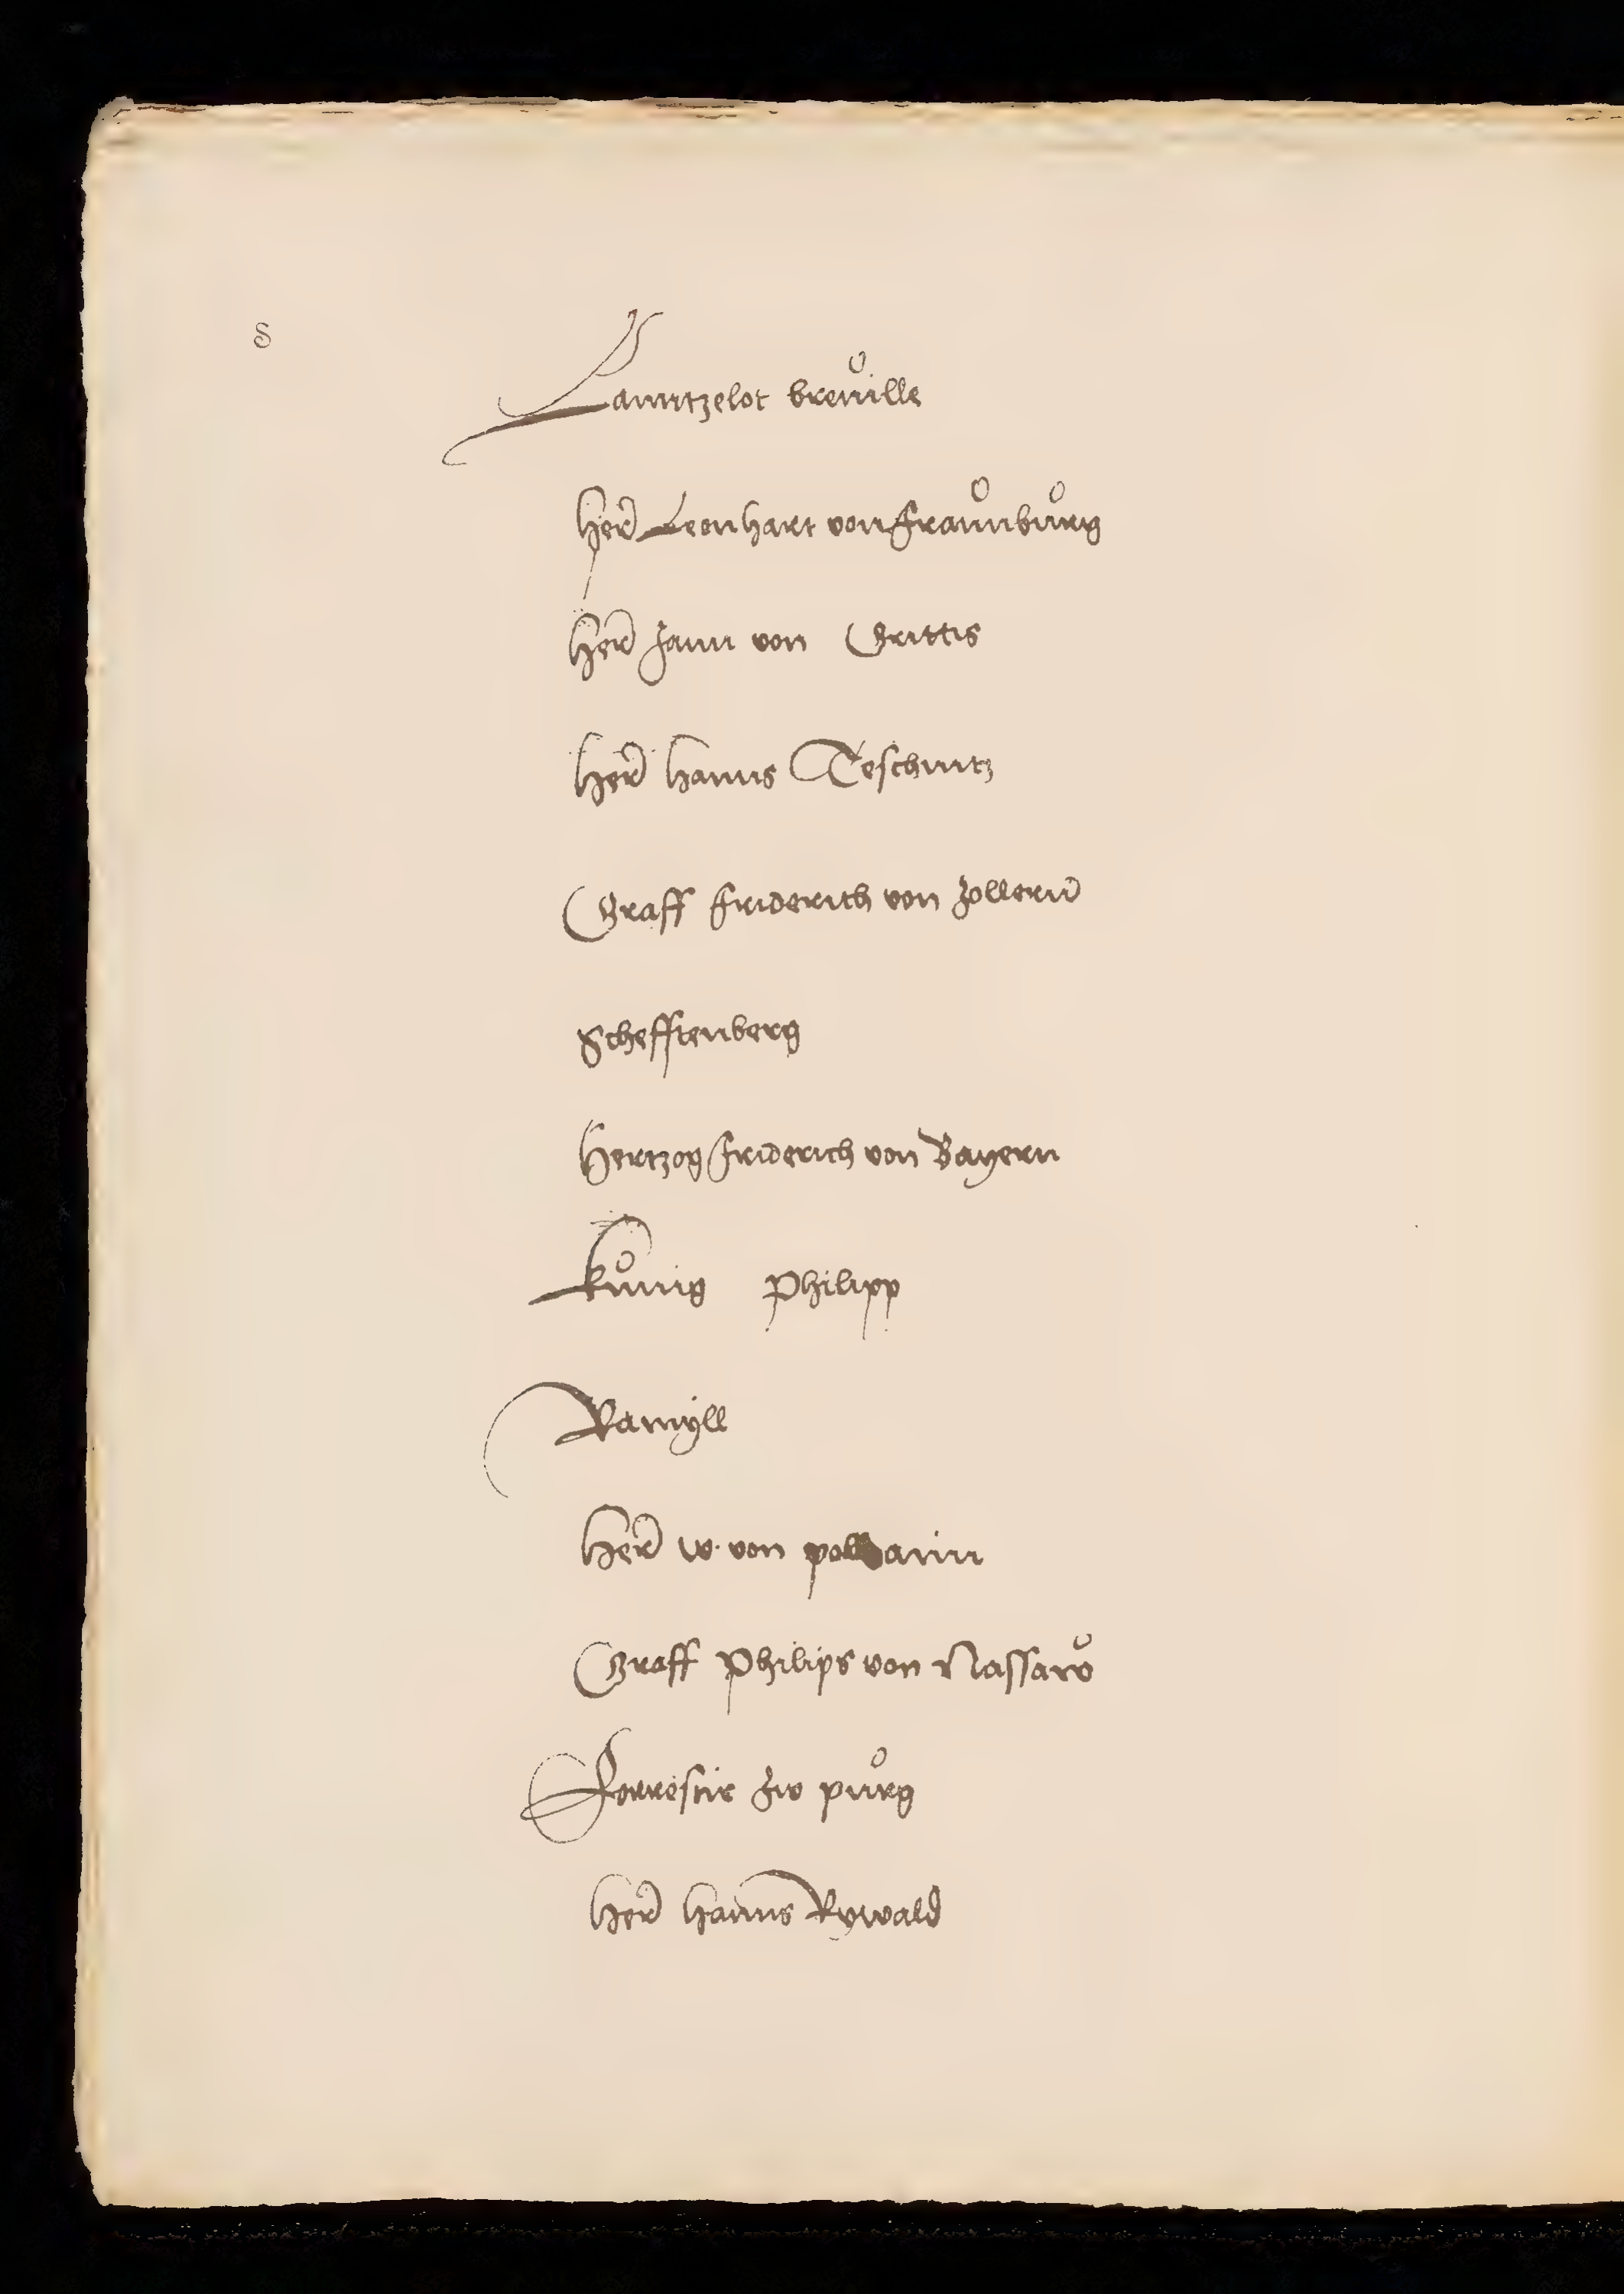 8
Lanntzelot breuille
Herr Leonhart von Fraunburg
Herr Jann von Grittis
Herr Hanns Teschnitz
Graff Friderich von Zollern
Schefftenberg
Hertzog Friderich von Bayern
Kunig Philipp
Ramyll
Herr W. von
Graff Philips von Nassaw
Forrestir zw purg
Herr Hanns Rywald